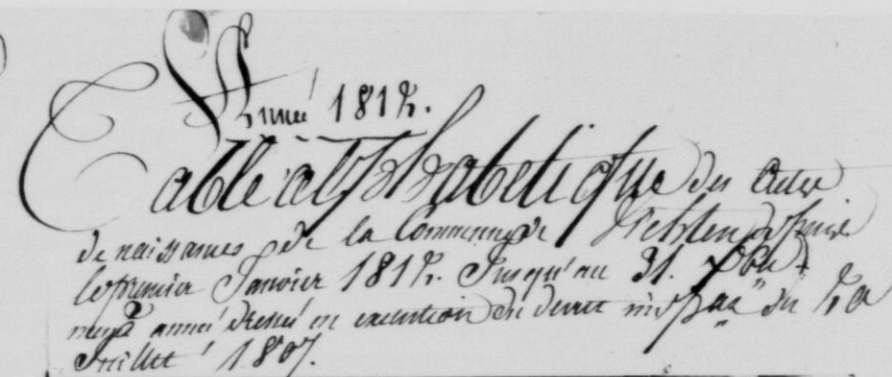 Année 1812.
Table alphabetique des actes
de naissances de la Commune de Vichten depuis
le premier Janvier 1812. Jusqu'au 31. Xbre
année dressé en execution du decret du 20
Juillet 1807.